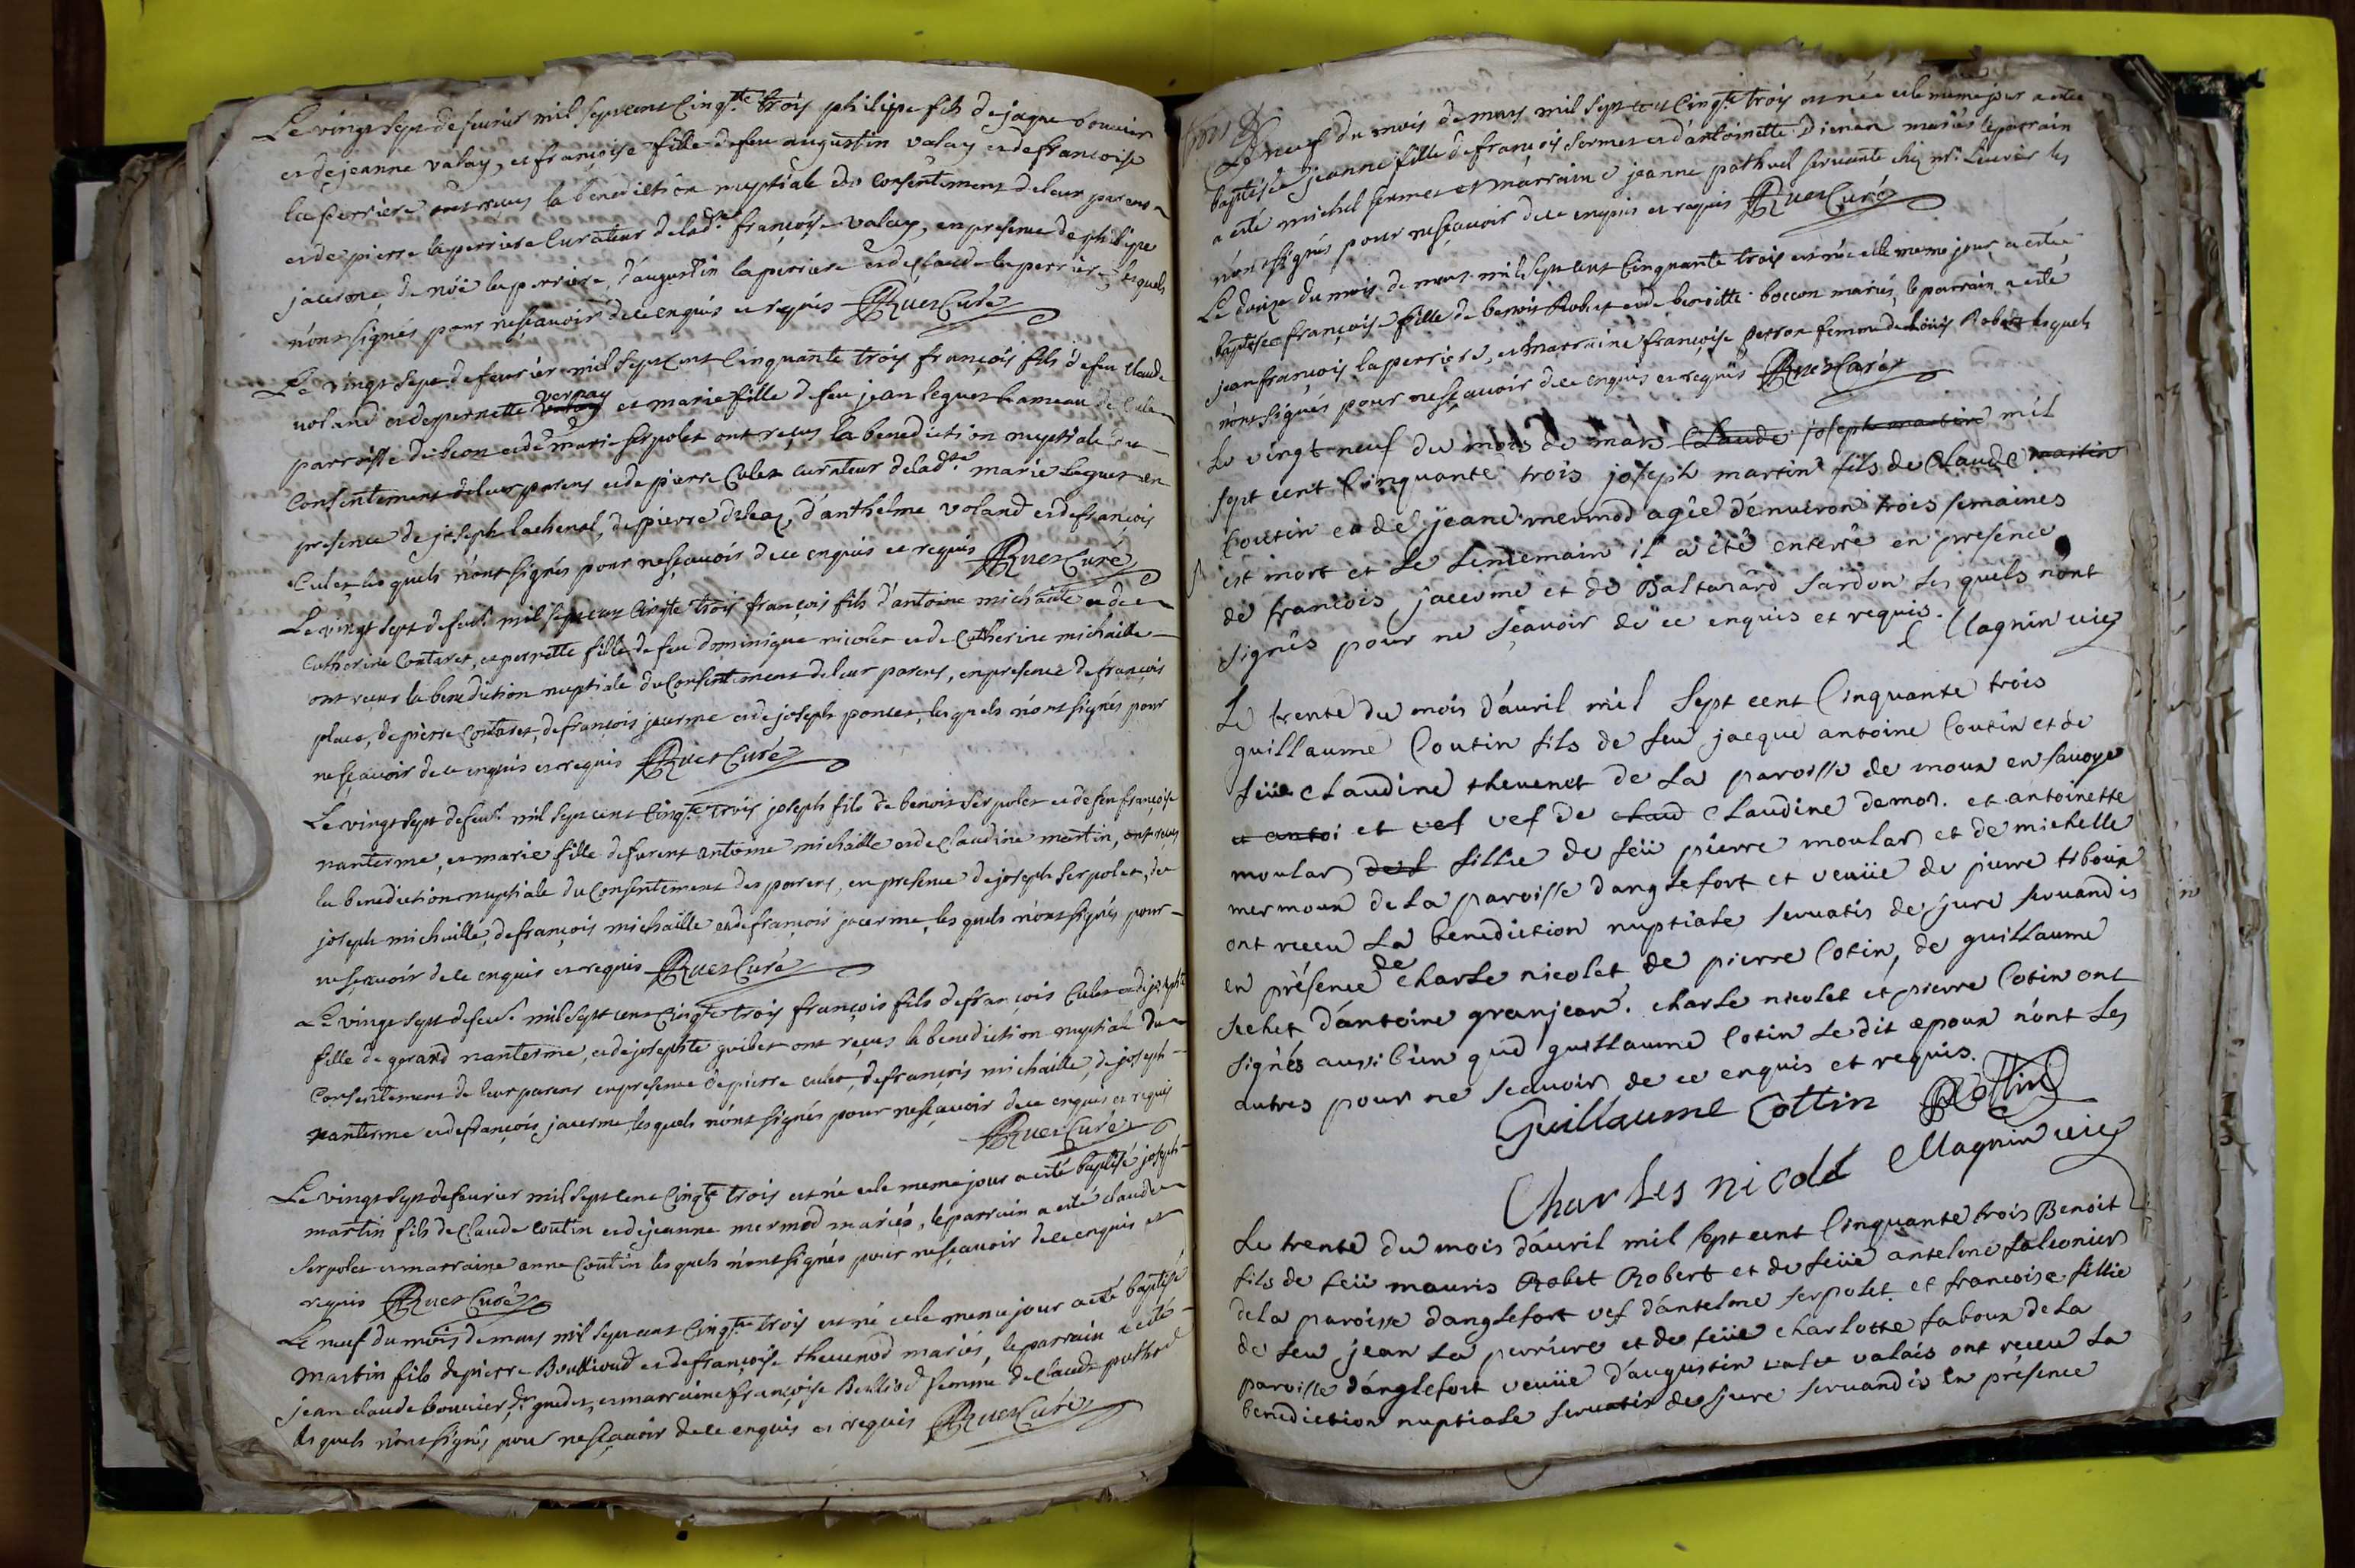 Le vingt sept de feurier mil sept cent Cinq.te trois philippe fils de jaque bouuier
et de jeanne valay, et françoise fille de feu augustin valay et de françoise
laperriere ont reçus la benediction nuptiale du Consentement de leur parens
et de pierre laperriere Curateur de lad.te françoise valay, en presence de philipe
jacerme, de noé laperriere, d'augustin laperriere et de claude laperriere lesquels
n'ont signés pour ne sçauoir de ce enquis et requis Ruet Curé
Le vingt sept de feurier mil sept Cent Cinquante trois françois fils de feu claude
voland et de pernette vernay et marie fille de feu jean leguet hameau de
parroisse de et de marie serpolet ont reçus la benediction nuptiale du
Consentement de leur parens et de pierre Culet curateur de lad.te marie leguet en
presence de joseph lachenal, de pierre d'anthelme voland et de françois
Culet les quels n'ont signés pour ne sçauoir de ce enquis et requis Ruet Curé
Le vingt sept de feu.r mil sept cent Cinq.te trois françois fils d'antoine michaille et de
Catherine Contaret, et pernette fille de feu dominique nicolet et de Catherine michaille
ont reçus la benediction nuptiale du Consentement de leur parens, en presence de françois
place, de pierre Contaret, de françois jacerme et de joseph poncet, les quels n'ont signés pour
ne sçauoir de ce enquis et requis Ruet Curé
Le vingt sept de feu.r mil sept cent Cinq.te trois joseph fils de benoit serpolet et de feu françoise
nanterme, et marie fille de furent antoine michaille et de Claudine martin, ont reçus
la benediction nuptiale du Consentement des parens, en presence de joseph serpolet, de
joseph michaille, de françois michaille et de françois jacerme, les quels n'ont signés pour
ne sçauoir de ce enquis et requis Ruet Curé
Le vingt sept de feu.r mil sept cent Cinq.te trois françois fils de françois Culet et de josephte
fille de gerard nanterme, et de josephte guibet ont reçus la benediction nuptiale du
Consentement de leur parens en presence de pierre culet, de françois michaille, de joseph
nanterme et de françois jacerme, les quels n'ont signés pour ne sçauoir de ce enquis et requis
Ruet Curé
Le vingt sept de feurier mil sept cent Cinq.te trois est né et le meme jour a eté baptisé joseph
martin fils de Claude coutin et de jeanne mermod mariés, le parrain a eté claude
serpolet et marraine anne Coutin les quels n'ont signés pour ne sçauoir de ce enquis et
requis Ruet Curé
Le neuf du mois de mars mil sept cent Cinq.te trois est né et le meme jour a eté baptisé
martin fils de pierre Boullioud et de françoise theuenod mariés, le parrain a eté
jean claude bouuier dt gudet, et marraine françoise Bulliod femme de Claude pothod
les quels n'ont signés pour ne sçauoir de ce enquis et requis Ruet Curé
Le neuf du mois de mars mil sept cent Cinq.te trois est née et le meme jour a eté
baptisée jeanne fille de françois sermet et d'antoinette mariés, le parrain
a eté michel sermet et marraine jeanne pothuel seruante chez mr. les
n'ont signés pour ne sçauoir de ce enquis et requis Ruet Curé
Le douze du mois de mars mil sept cent Cinquante trois est née et le meme jour a eté
baptisée françoise fille de benoit Robet et de benoitte boccon mariés, le parrain a eté
jean françois laperriere, et marraine françoise perron femme de loüis Robet les quels
n'ont signés pour ne sçauoir de ce enquis et requis Ruet Curé
Le vingt neuf du mois de mars Claude joseph martin mil
sept cent Cinquante trois joseph martin fils de Claude martin
Coutin et de jeane mermod agée d'enuiron trois semaines
est mort et le lendemain il a été enterré en presence
de francois jacerme et de Baltazard sardon les quels n'ont
signés pour ne sçauoir de ce enquis et requis. Magnin vic
Le trente du mois d'auril mil sept cent Cinquante trois
guillaume Coutin fils de feu jacque antoine Coutin et de
feüe claudine theuenet de la paroisse de moux en sauoye
et antoi et vef vef de claud claudine demos. et antoinette
moular de f fillie de feü pierre moular et de michelle
mermoux de la paroisse d'anglefort et veuüe de pierre tiboux
ont receu la benediction nuptiale seruatis de jure seruandis
en présence de charle nicolet de pierre Cotin, de guillaume
sechet d'antoine granjean. charle nicolet et pierre Cotin ont
signés aussi bien que guillaume Cotin le dit epoux n'ont les
autres pour ne scauoir de ce enquis et requis.
Guillaume Cottin PCottin
Charles nicole Magnin vic
Le trente du mois d'auril mil sept cent Cinquante trois Benoit
fils de feü mauris Robet Robert et de feüe antelme falconier
de la paroisse d'anglefort vef d'antelme serpolet et francoise fillie
de feu jean la perriere et de feüe charlotte faboux de la
paroisse d'anglefort veuüe d'augustin valet valais ont receu la
benediction nuptiale seruatis de jure seruandis en présence